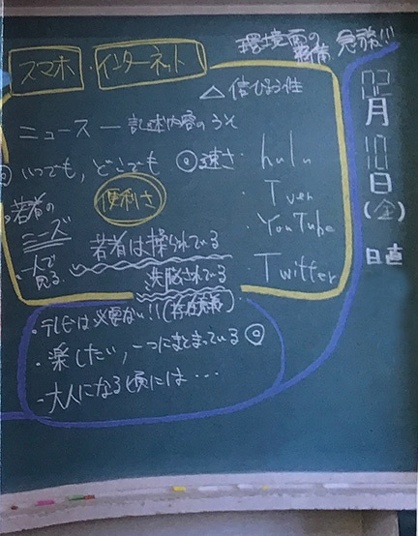 環境面の
整備 急務!!
スマホ・インターネット
△信ぴょう性
ニュース ― 記述内容のうそ
いつでも, どこでも ◎速さ
便利さ
若者の
ニーズ
一人で
見る
若者は操られている
洗脳されている
・hulu
・Tver
・YouTube
・Twitter
・テレビは必要ない!!(存在意義)
・楽したい, 一つにまとまっている◎
・大人になる頃には…
02
月
10
日
(金)
日直